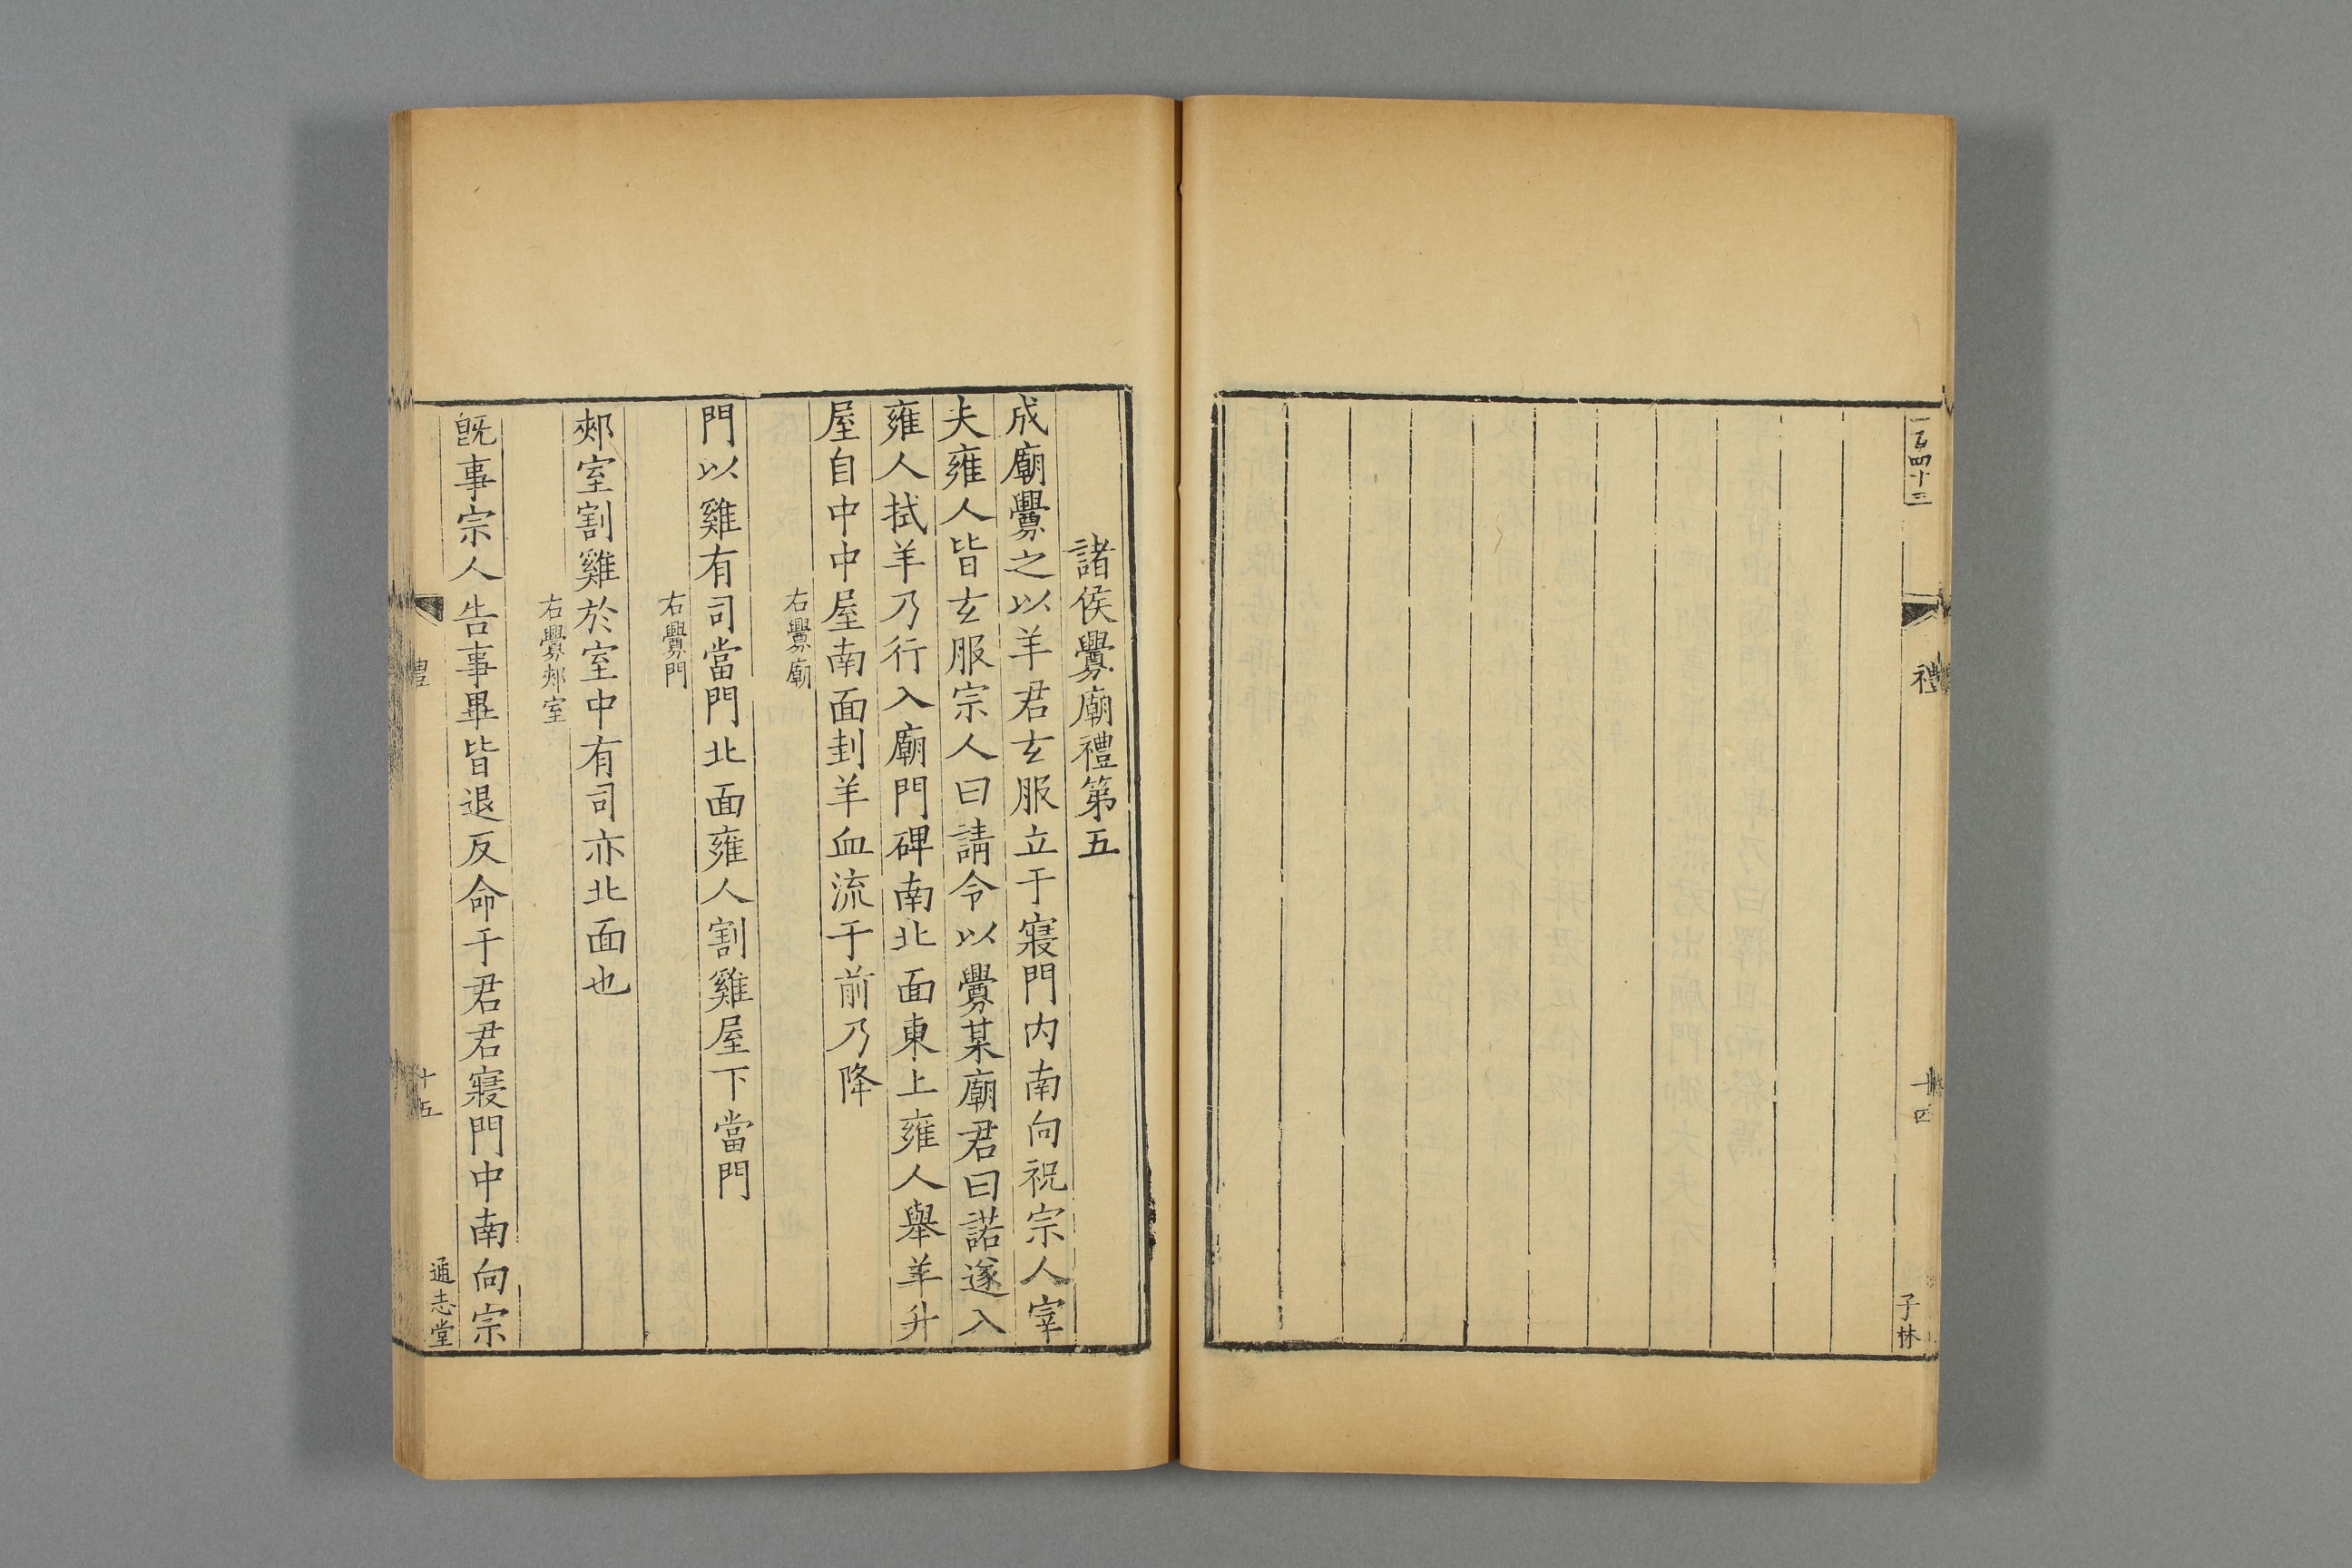 一百四十三
禮
十四
子林
諸侯釁廟禮第五
成廟釁之以羊君玄服立于寢門内南向祝宗人宰
夫雍人皆玄服宗人曰請令以釁某廟君曰諾遂入
雍人拭羊乃行入廟門碑南北面東上雍人舉羊升
屋自中中屋南面刲羊血流于前乃降
右釁廟
門以雞有司當門北面雍人割雞屋下當門
右釁門
郟室割雞於室中有司亦北面也
右釁郟室
既事宗人告事畢皆退反命于君君寢門中南向宗
禮
十五
通志堂